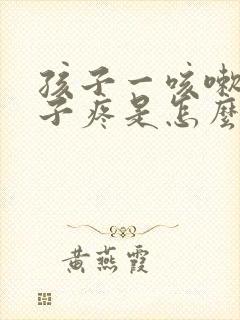 孩子一咳嗽
子疼是怎麼
黄燕霞